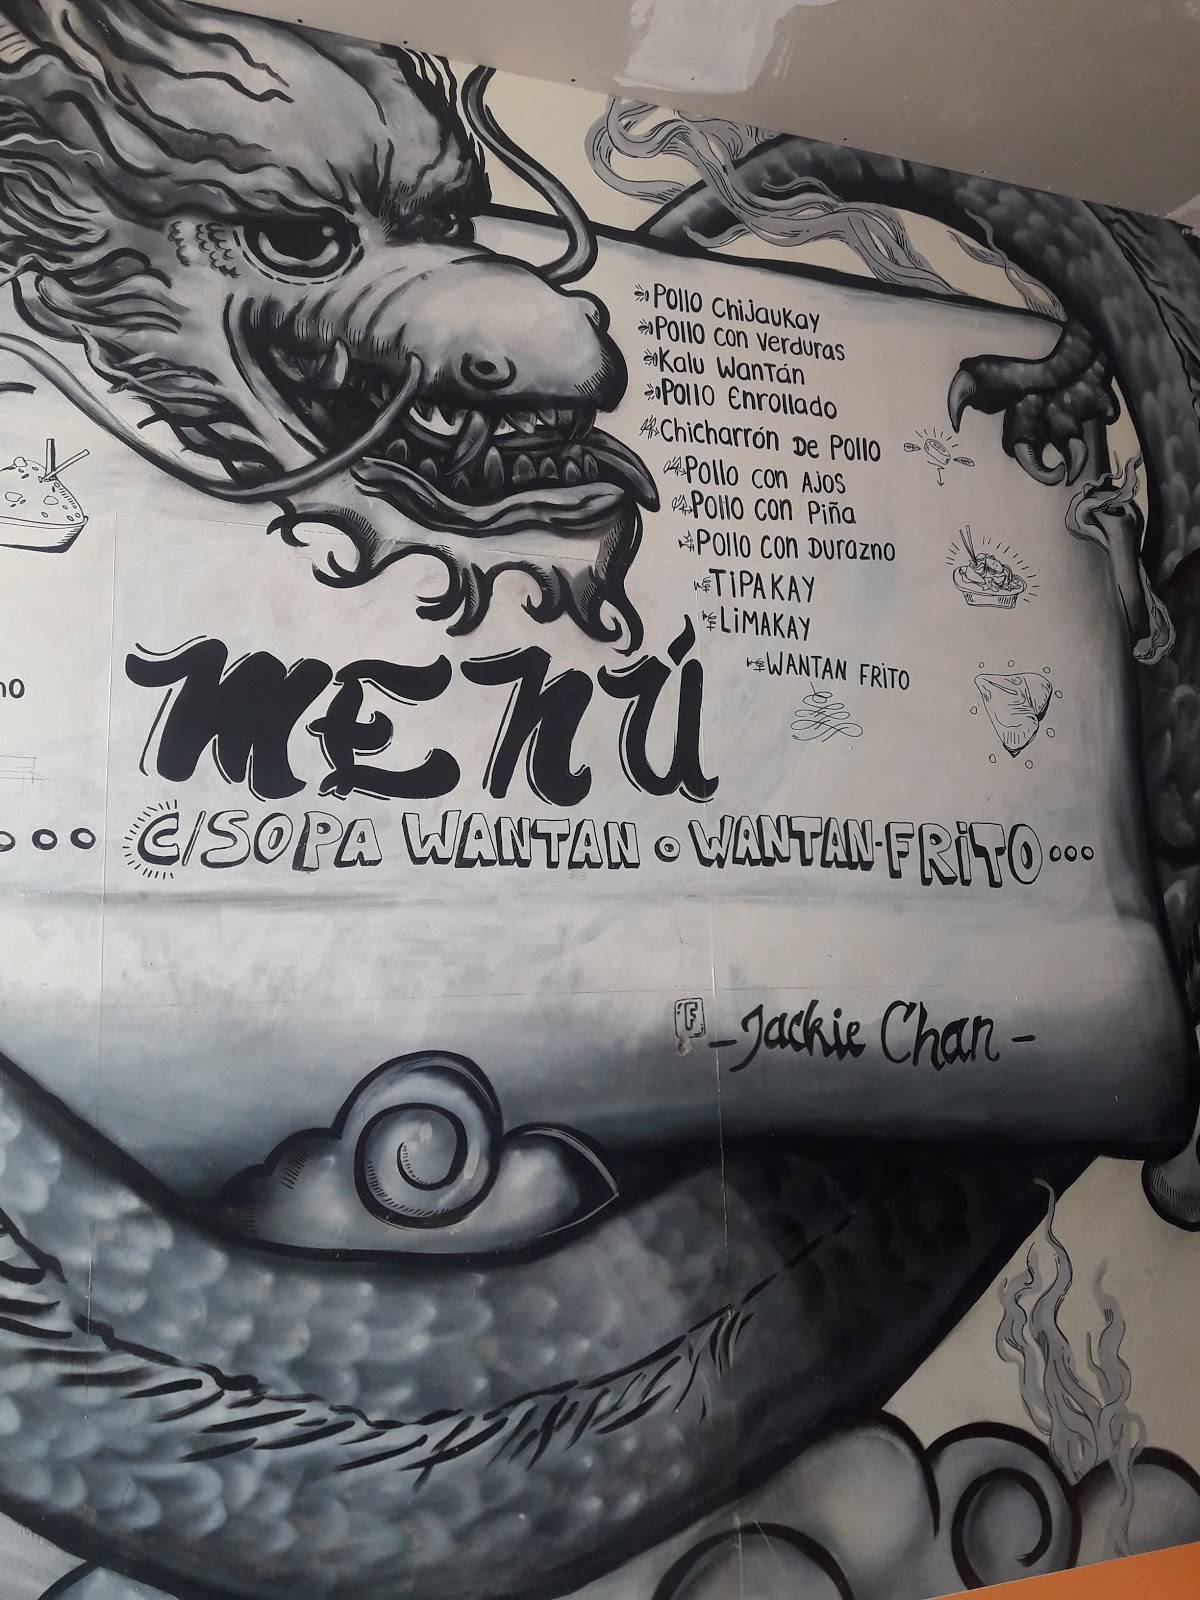 Pollo Chijaukay
Pollo con Verduras
Kalu Wantán
Pollo Enrollado
Chicharrón De Pollo
Pollo con Ajos
Pollo con Piña
Pollo con Durazno
TiPAKAY
LiMAKAY
WANTAN FRITO
MENÚ
C/SOPA WANTAN o WANTAN-FRiTO...
F - Jackie Chan -